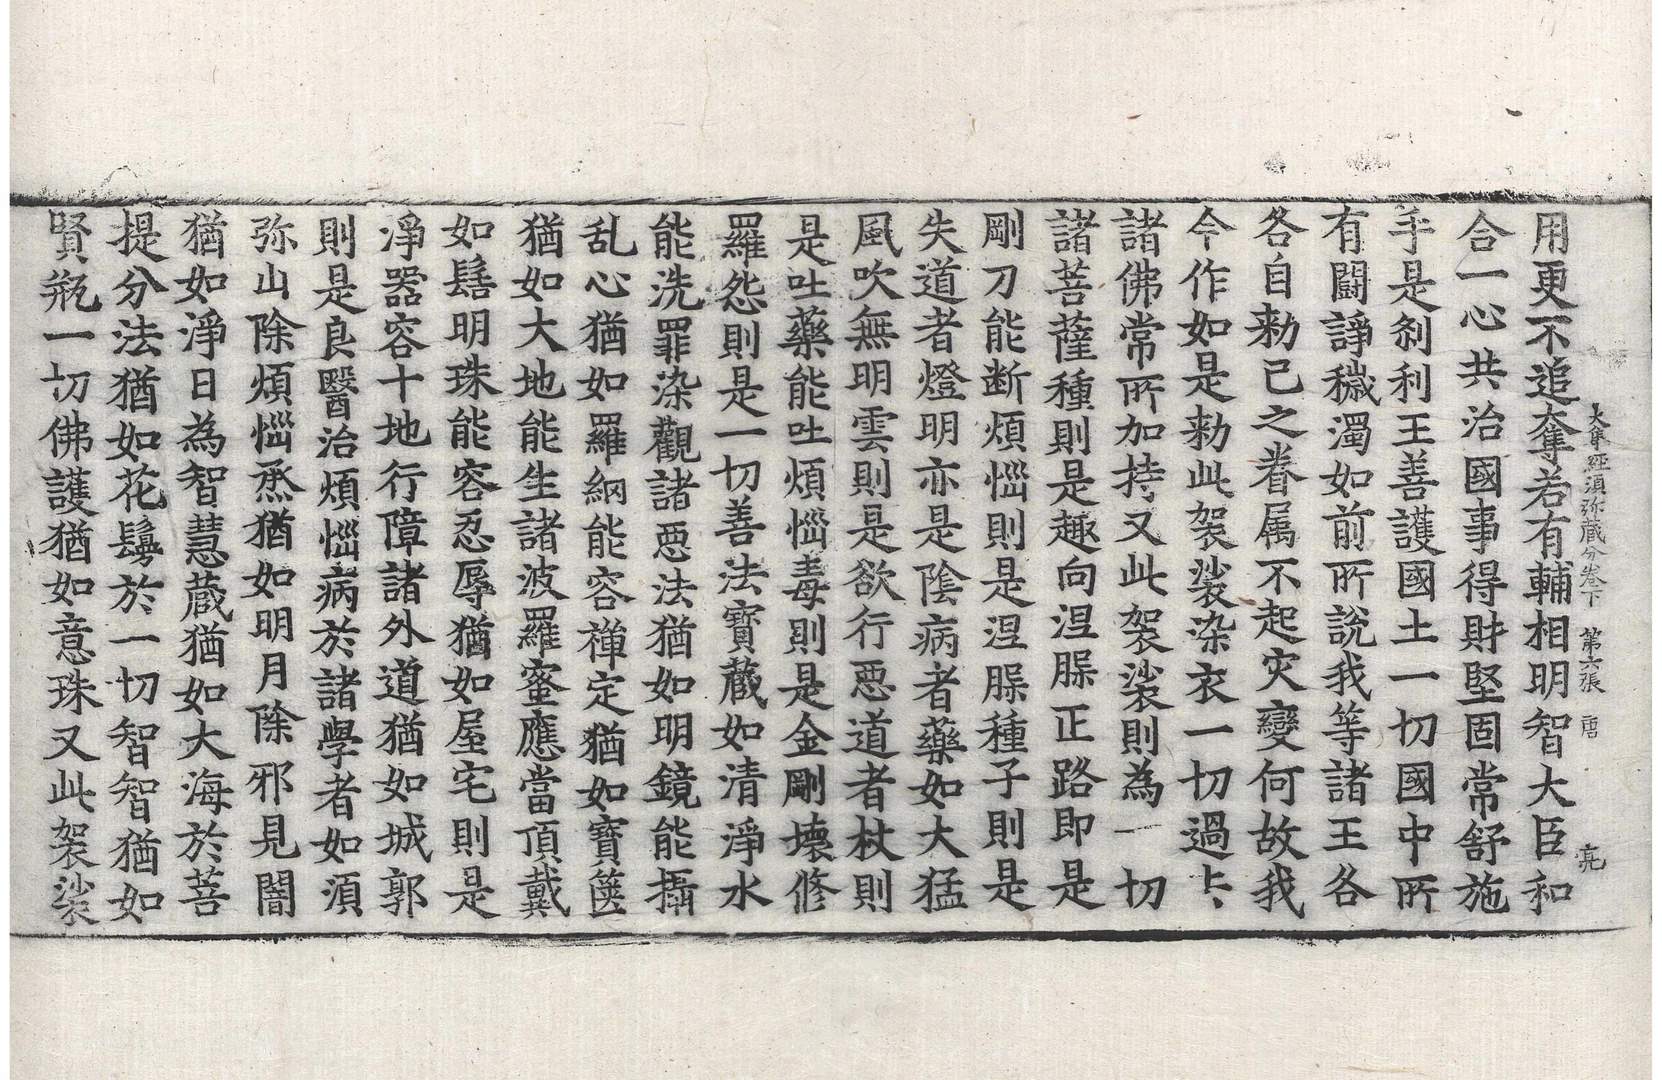 用更不追奪若有輔相明智大臣和
大集經湏弥藏分卷下 第六張 唐 亮
合一心共治國事得財堅固常舒施
手是刹利王善護國土一切國中所
有鬪諍穢濁如前所說我等諸王各
各自勑已之眷属不起灾變何故我
今作如是勑此袈裟染衣一切過去
諸佛常所加持又此袈裟則為一切
諸菩薩種則是趣向涅槃正路即是
剛刀能断煩惱則是涅槃種子則是
失道者燈明亦是陰病者藥如大猛
風吹無明雲則是欲行惡道者杖則
是吐藥能吐煩惱毒則是金剛壞修
羅怨則是一切善法寶藏如清淨水
能洗罪染觀諸惡法猶如明鏡能攝
乱心猶如羅網能容禪定猶如寶篋
猶如大地能生諸波羅蜜應當頂戴
如髻明珠能容忍辱猶如屋宅則是
淨器容十地行障諸外道猶如城郭
則是良醫治煩惱病於諸學者如湏
弥山除煩惱烝猶如明月除邪見闇
猶如淨日為智慧藏猶如大海於菩
提分法猶如花鬘於一切智智猶如
賢瓶一切佛護猶如意珠又此袈裟